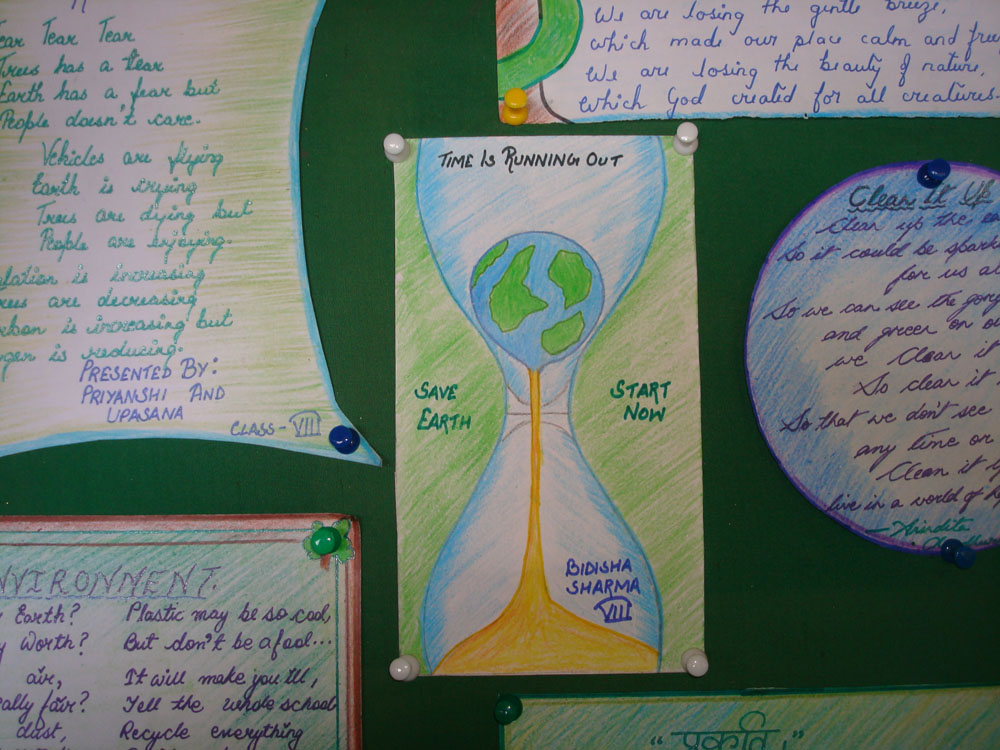 Tear Tear
Trees has a tear
Earth has a fear but
People doesn't care.
Vehicles are flying
Earth is crying
Trees are dying but
People are enjoying.
is increasing
are decreasing
is increasing but
is reducing.
PRESENTED BY:
PRIYANSHI AND
UPASANA
CLASS - VII
We are losing the gentle breeze,
which made our place calm and
We are losing the beauty of nature,
which God created for all creatures.
TIME IS RUNNING OUT
SAVE
EARTH
START
NOW
BIDISHA
SHARMA
VII
Clean It Up
Clean up the
So it could be
for us
So we can see the
and green on
we Clean it
So clean it
So that we don't see
any time or
Clean it
live in a world of
ENVIRONNENT.
Earth?
Worth?
air,
fair?
dust,
Plastic may be so cool,
But don't be a fool...
It will make you ill,
Tell the whole school
Recycle everything
"प्रकृति"